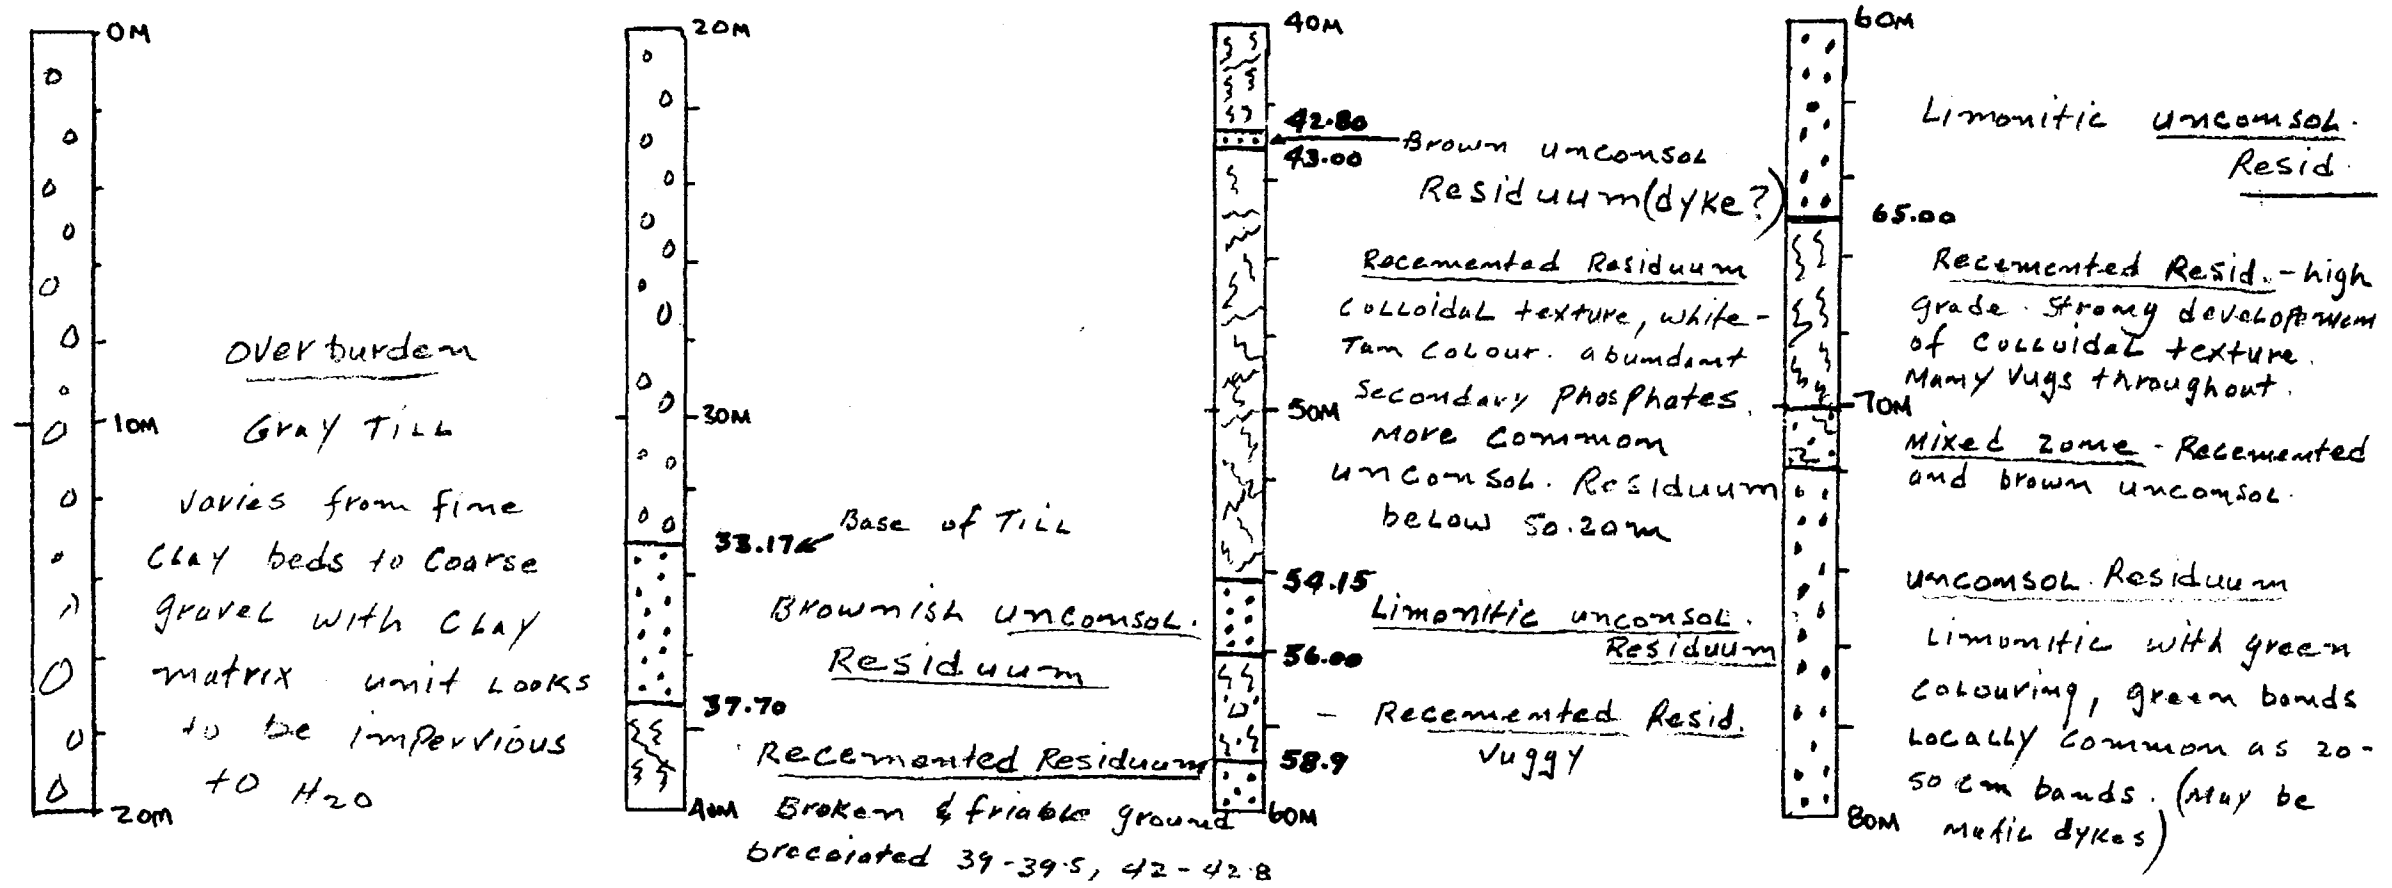 0M
10M
20M
Overburden
Gray Till
varies from fine
clay beds to coarse
gravel with clay
matrix unit looks
to be impervious
to H2O
20M
30M
33.17
Base of Till
Brownish unconsol.
Residuum
37.70
Recemented Residuum
40M
Broken & friable ground
brecciated 39-39.5, 42-42.8
40M
42.80
43.00
Brown unconsol
Residuum (dyke?)
Recemented Residuum
colloidal texture, white-
Tan colour. abundant
secondary phosphates.
50M
more common
unconsol. Residuum
below 50.20m
54.15
Limonitic unconsol.
Residuum
56.00
- Recemented Resid.
vuggy
58.9
60M
60M
Limonitic unconsol.
Resid.
65.00
Recemented Resid. - high
grade. Strong developmen
of colloidal texture.
Many vugs throughout.
70M
Mixed zone - Recemented
and brown unconsol.
unconsol. Residuum
Limonitic with green
colouring, green bands
locally common as 20-
50 cm bands. (May be
mafic dykes)
80M